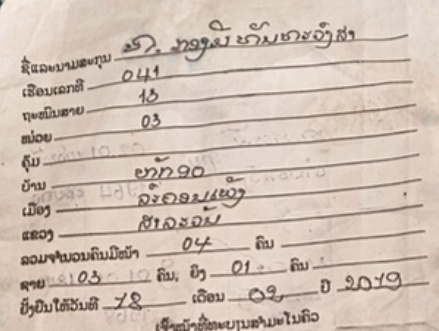 ຊື່ແລະນາມສະກຸນ ທ. ກອງມີ
ເຮືອນເລກທີ 041
ຖະໜົນສາຍ 13
ໜ່ວຍ 03
ຄຸ້ມ
ບ້ານ ຫຼັກ 20
ເມືອງ ລະຄອນເພັງ
ແຂວງ ສາລະວັນ
ລວມຈຳນວນຄົນມີໜ້າ 04 ຄົນ
ຊາຍ 03 ຄົນ, ຍິງ 01 ຄົນ
ປຶ້ມນີ້ໃຫ້ວັນທີ 12 ເດືອນ 02 ປີ 2019
ເຈົ້າໜ້າທີ່ທະບຽນສຳມະໂນຄົວ